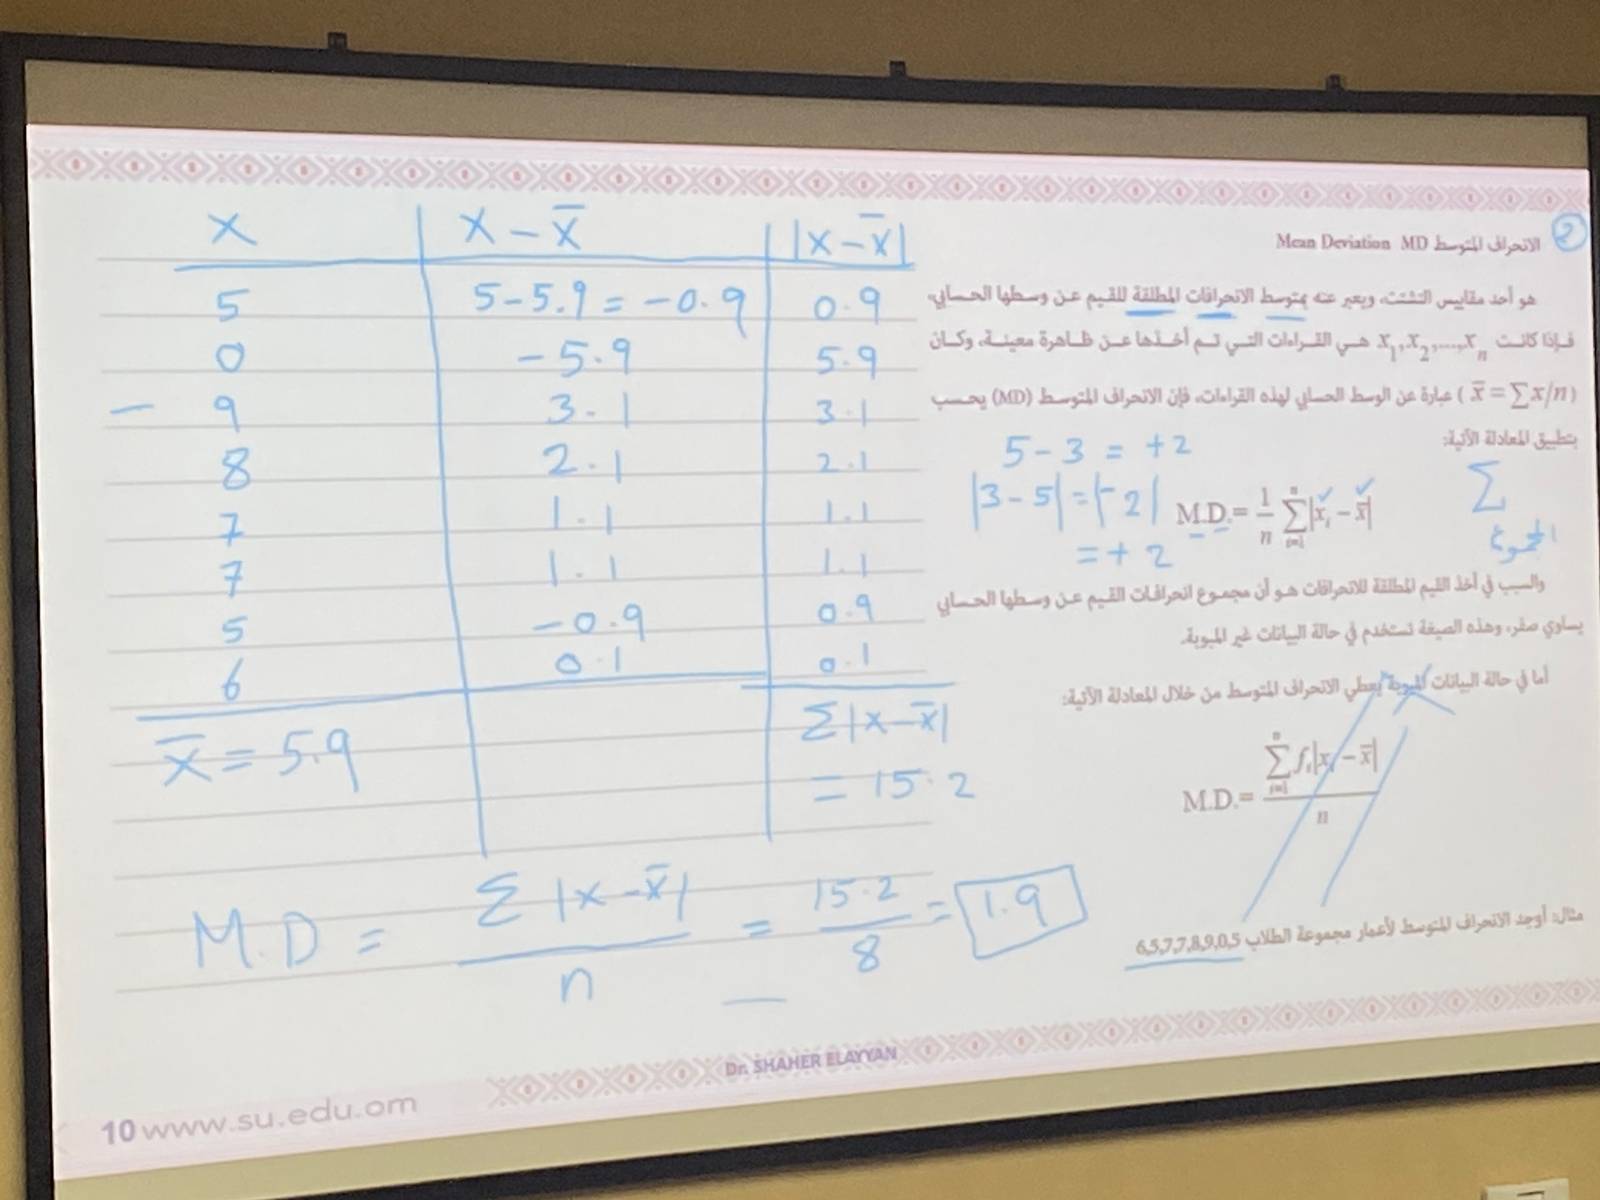 x | x - x̄ | |x - x̄|
5 | 5 - 5.9 = -0.9 | 0.9
0 | -5.9 | 5.9
- 9 | 3.1 | 3.1
8 | 2.1 | 2.1
7 | 1.1 | 1.1
7 | 1.1 | 1.1
5 | -0.9 | 0.9
6 | 0.1 | 0.1
x̄ = 5.9
Σ|x - x̄|
= 15.2
M.D = Σ|x - x̄| / n = 15.2 / 8 = 1.9
2
الانحراف المتوسط Mean Deviation MD
هو أحد مقاييس التشتت، ويعبر عنه بمتوسط الانحرافات المطلقة للقيم عن وسطها الحسابي،
فإذا كانت x₁, x₂, ..., xₙ هي القراءات التي تم أخذها عن ظاهرة معينة، وكان
(x̄ = ∑x/n) عبارة عن الوسط الحسابي لهذه القراءات، فإن الانحراف المتوسط (MD) يحسب
بتطبيق المعادلة الآتية:
5 - 3 = +2
|3 - 5| = |-2|
= +2
M.D. = 1/n ∑ⁿᵢ₌₁ |xᵢ - x̄|
Σ
المجموع
والسبب في أخذ القيم المطلقة للانحرافات هو أن مجموع انحرافات القيم عن وسطها الحسابي
يساوي صفر، وهذه الصيغة تستخدم في حالة البيانات غير المبوبة.
أما في حالة البيانات المبوبة يعطي الانحراف المتوسط من خلال المعادلة الآتية:
M.D. = ∑ⁿᵢ₌₁ fᵢ|xᵢ - x̄| / n
مثال: أوجد الانحراف المتوسط لأعمار مجموعة الطلاب 6,5,7,7,8,9,0,5
Dr. SHAHER ELAYYAN
10 www.su.edu.om